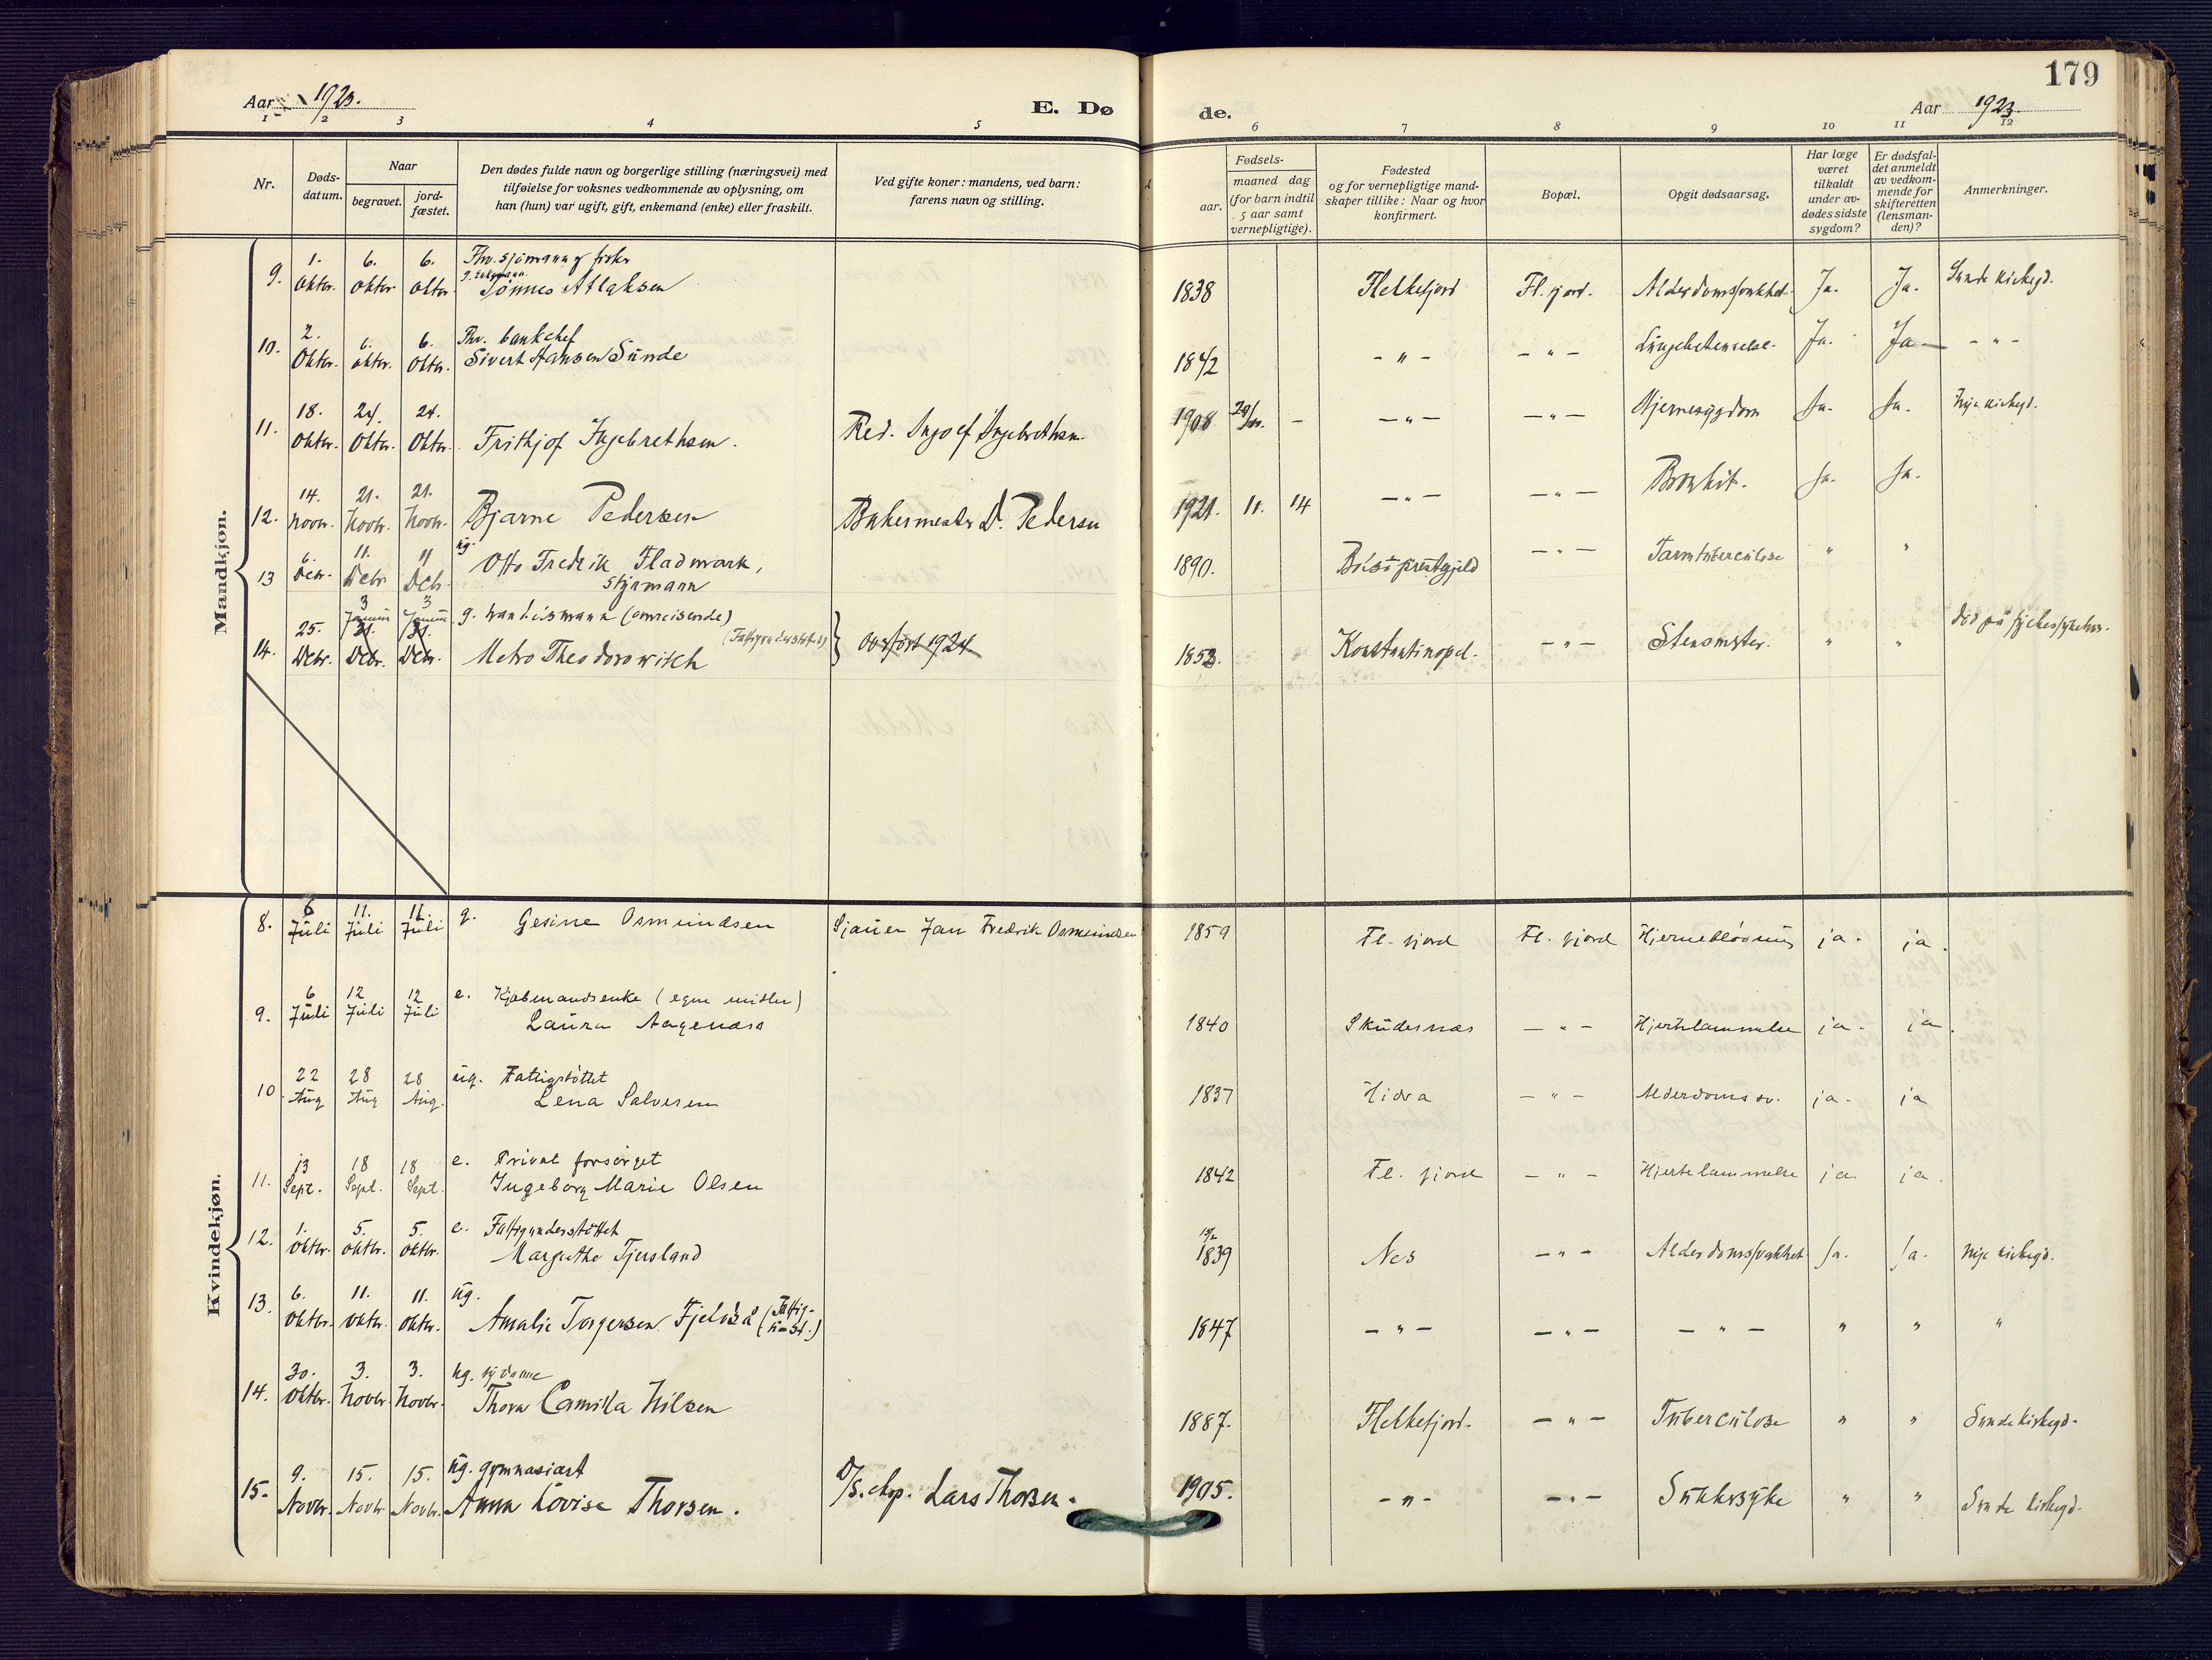 179
Aar 1923.
E. Døde.
Aar 1923.
1 2 3 4 5 6 7 8 9 10 11 12
Nr.
Dødsdatum.
Naar
begravet.
jordfæstet.
Den dødes fulde navn og borgerlige stilling (næringsvei) med
tilføielse for voksnes vedkommende av oplysning, om
han (hun) var ugift, gift, enkemand (enke) eller fraskilt.
Ved gifte koner: mandens, ved barn:
farens navn og stilling.
Fødsels-
aar.
maaned dag
(for barn indtil
5 aar samt
vernepligtige).
Fødested
og for vernepligtige mand-
skaper tillike: Naar og hvor
konfirmert.
Bopæl.
Opgit dødsaarsag.
Har læge
været
tilkaldt
under av-
dødes sidste
sygdom?
Er dødsfal-
det anmeldt
av vedkom-
mende for
skifteretten
(lensman-
den)?
Anmerkninger.
Mandkjøn.
9. 1. Oktbr. 6. Oktbr. 6. Oktbr. Fhv. sjömann og fisker
Tönnes Atlaksen 1838 Flekkefjord Fl. fjord. Alderdomssvakhet. Ja. Ja. Sunde Kirkegd.
10. 2. Oktbr. 6. Oktbr. 6. Oktbr. Fhv. bankchef
Sivert Hansen Sunde 1842 - " - - " - Lungebetennelse. Ja. Ja - " -
11. 18. Oktbr. 24. Oktbr. 24. Oktbr. Frithjof Ingebrethsen. Red. Ingolf Ingebrethsen. 1908 - - " - - " - Hjernesygdom Ja. Ja. Nye kirkegd.
12. 14. Novbr. 21. Novbr. 21. Novbr. Bjarne Pedersen Bakermester D. Pedersen 1921. 11. 14 - " - - " - Bronkit. Ja. Ja.
13 6. Debr. 11. Debr. 11 Debr. ug. Otto Fredrik Fladmark,
Styrmann 1890. Bolsö prestegjeld - " - Tarmtuberculose " "
14. 25. Debr. 3 Januar 31. Debr. 3 Januar 31. Debr. g. handelsmann (omreisende)
Metro Theodorowitch } overfört 1924 1853. Konstantinopel. - " - " " död på sykehus.
Kvindekjøn.
8. 6 Juli 11. Juli 11. Juli g. Gesine Osmundsen Sjauer Jan Fredrik Osmundsen 1859 Fl. fjord Fl. fjord Hjerneblödning ja. ja.
9. 6 Juli 12 Juli 12 Juli e. Kjøbmandsenke (egne midler)
Laura Aagenæs 1840 Skudesnæs - " - Hjertelammelse ja. ja.
10 22 Aug 28 Aug 28 Aug. ug. Fattigstöttet
Lena Salvesen 1837 Hidra - " - Alderdomssv. ja. ja
11. 13 Sept. 18 Sept. 18 Sept. e. Privat forsørget
Ingeborg Marie Olsen 1842 Fl. fjord - " - Hjertelammelse ja. ja.
12. 1. Oktbr. 5. Oktbr. 5. Oktbr. e. Fattigunderstöttet
Margrethe Tjersland 1839 Nes - " - Alderdomssvakhet Ja. Ja. Nye kirkegd.
13. 6. Oktbr. 11. Oktbr. 11. Oktbr. ug.
Amalie Torgersen Fjelså (Fattig-
u-st.) 1847 - " - - " - - " - " " "
14. 30. Oktbr. 3. Novbr. 3. Novbr. ug. sydame
Thora Camilla Nilsen 1887. Flekkefjord. - " - Tuberculose " " Sunde kirkegd.
15. 9. Novbr. 15. Novbr. 15. Novbr. ug. gymnasiast
Anna Lovise Thorsen. D/S. eksp. Lars Thorsen. 1905. - " - - " - Sukkersyke " " Sunde kirkegd.